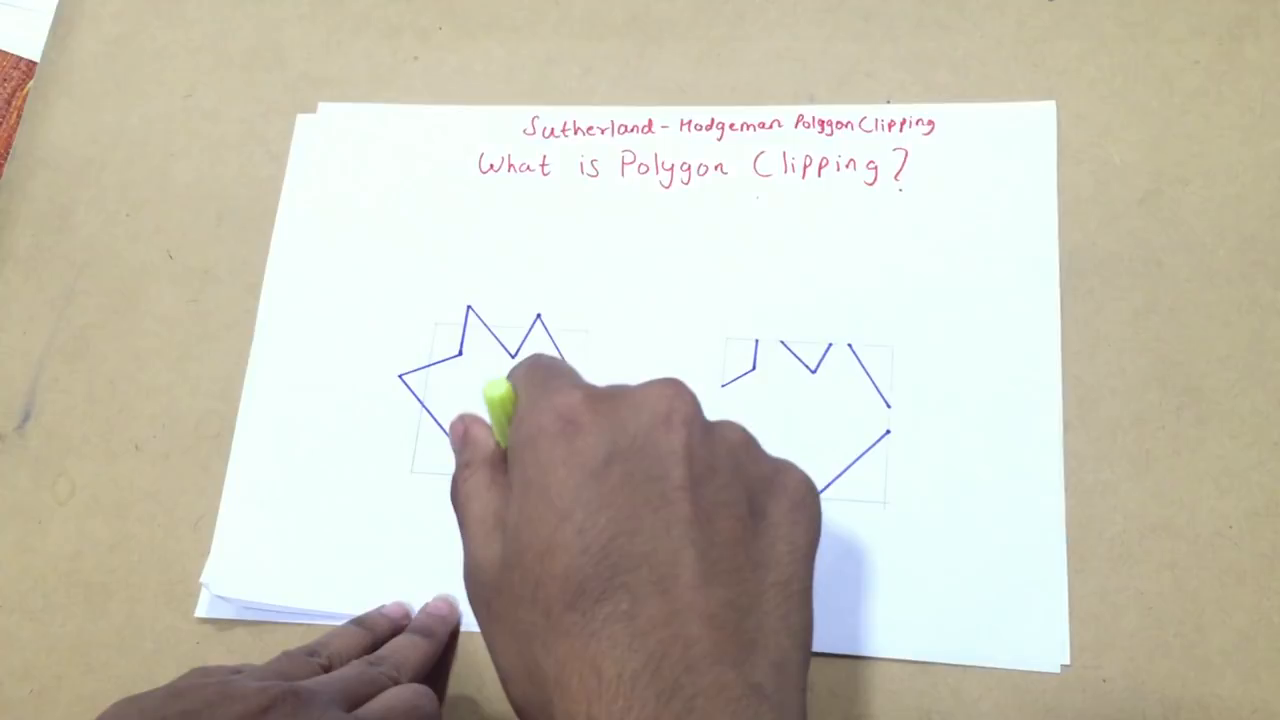 Sutherland - Hodgeman Polygon Clipping
What is Polygon Clipping?